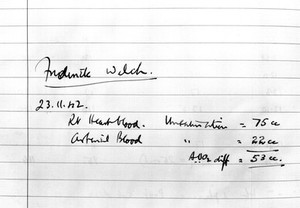 Frederick Welch.
23.11.42.
Rt Heart blood. Unsaturation = 75 cc
Arterial Blood " = 22 cc
diff = 53 cc.